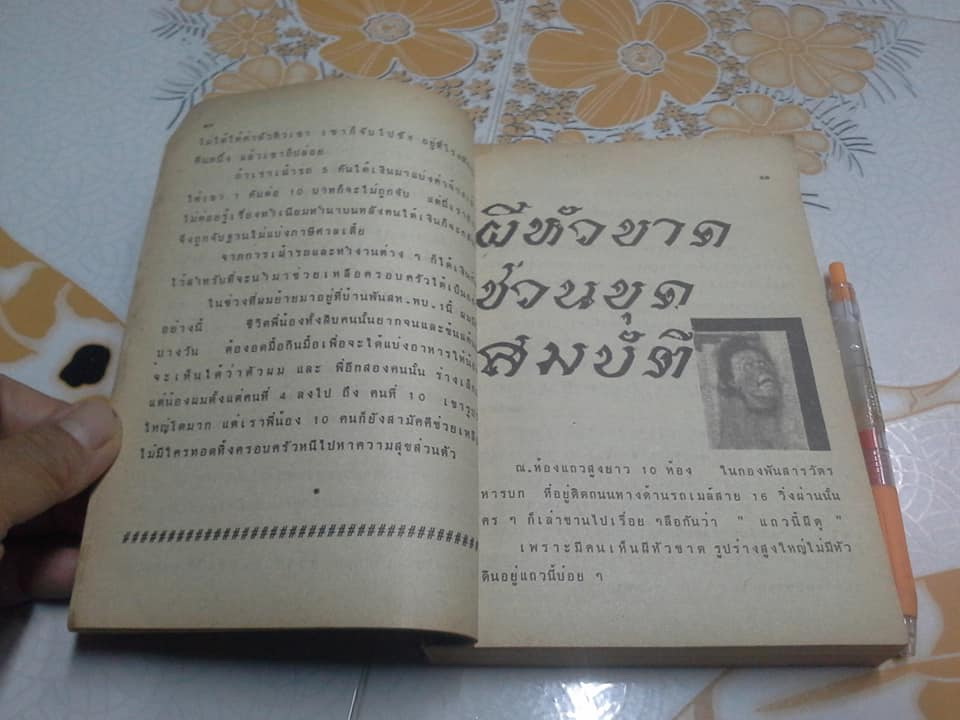 ๑๐
ไม่ได้ให้ค่าหัวคิวเขา เขาก็จับไปขัง อยู่ที่โรงพัก
คืนหนึ่ง แล้วเขาก็ปล่อย
ถ้าเราเฝ้ารถ 5 คันได้เงินมาแบ่งค่า
ให้เขา 1 คันต่อ 10 บาทก็จะไม่ถูกจับ แต่
ไม่ค่อยรู้เรื่องทำเนียมทำนาบนหลังคนได้เงินก็จะ
จึงถูกจับฐานไม่แบ่งภาษีศาลเตี้ย
จากการเฝ้ารถและทำงานต่าง ๆ ก็ได้เงิน
ไว้สำหรับที่จะนำมาช่วยเหลือครอบครัวได้เป็น
ในช่วงที่ผมย้ายมาอยู่ที่บ้านพันสห.พบ.1นี้ ผม
อย่างนี้ ชีวิตพี่น้องทั้งสิบคนนั้นยากจนและข้นแค้น
บางวัน ต้องอดมื้อกินมื้อเพื่อจะได้แบ่งอาหารให้น้อง
จะเห็นได้ว่าตัวผม และ พี่อีกสองคนนั้น ร่างเล็ก
แต่น้องผมตั้งแต่คนที่ 4 ลงไป ถึง คนที่ 10 เขารูป
ใหญ่โตมาก แต่เราพี่น้อง 10 คนก็ยังสามัคคีช่วยเหลือ
ไม่มีใครทอดทิ้งครอบครัวหนีไปหาความสุขส่วนตัว
*
######################################
๑๑
ผีหัวขาด
ชวนขุด
สมบัติ
ณ.ห้องแถวสูงยาว 10 ห้อง ในกองพันสารวัตร
หารบก ที่อยู่ติดถนนทางด้านรถเมล์สาย 16 วิ่งผ่านนั้น
คร ๆ ก็เล่าขานไปเรื่อย ๆลือกันว่า " แถวนี้ผีดุ "
เพราะมีคนเห็นผีหัวขาด รูปร่างสูงใหญ่ไม่มีหัว
ดินอยู่แถวนี้บ่อย ๆ